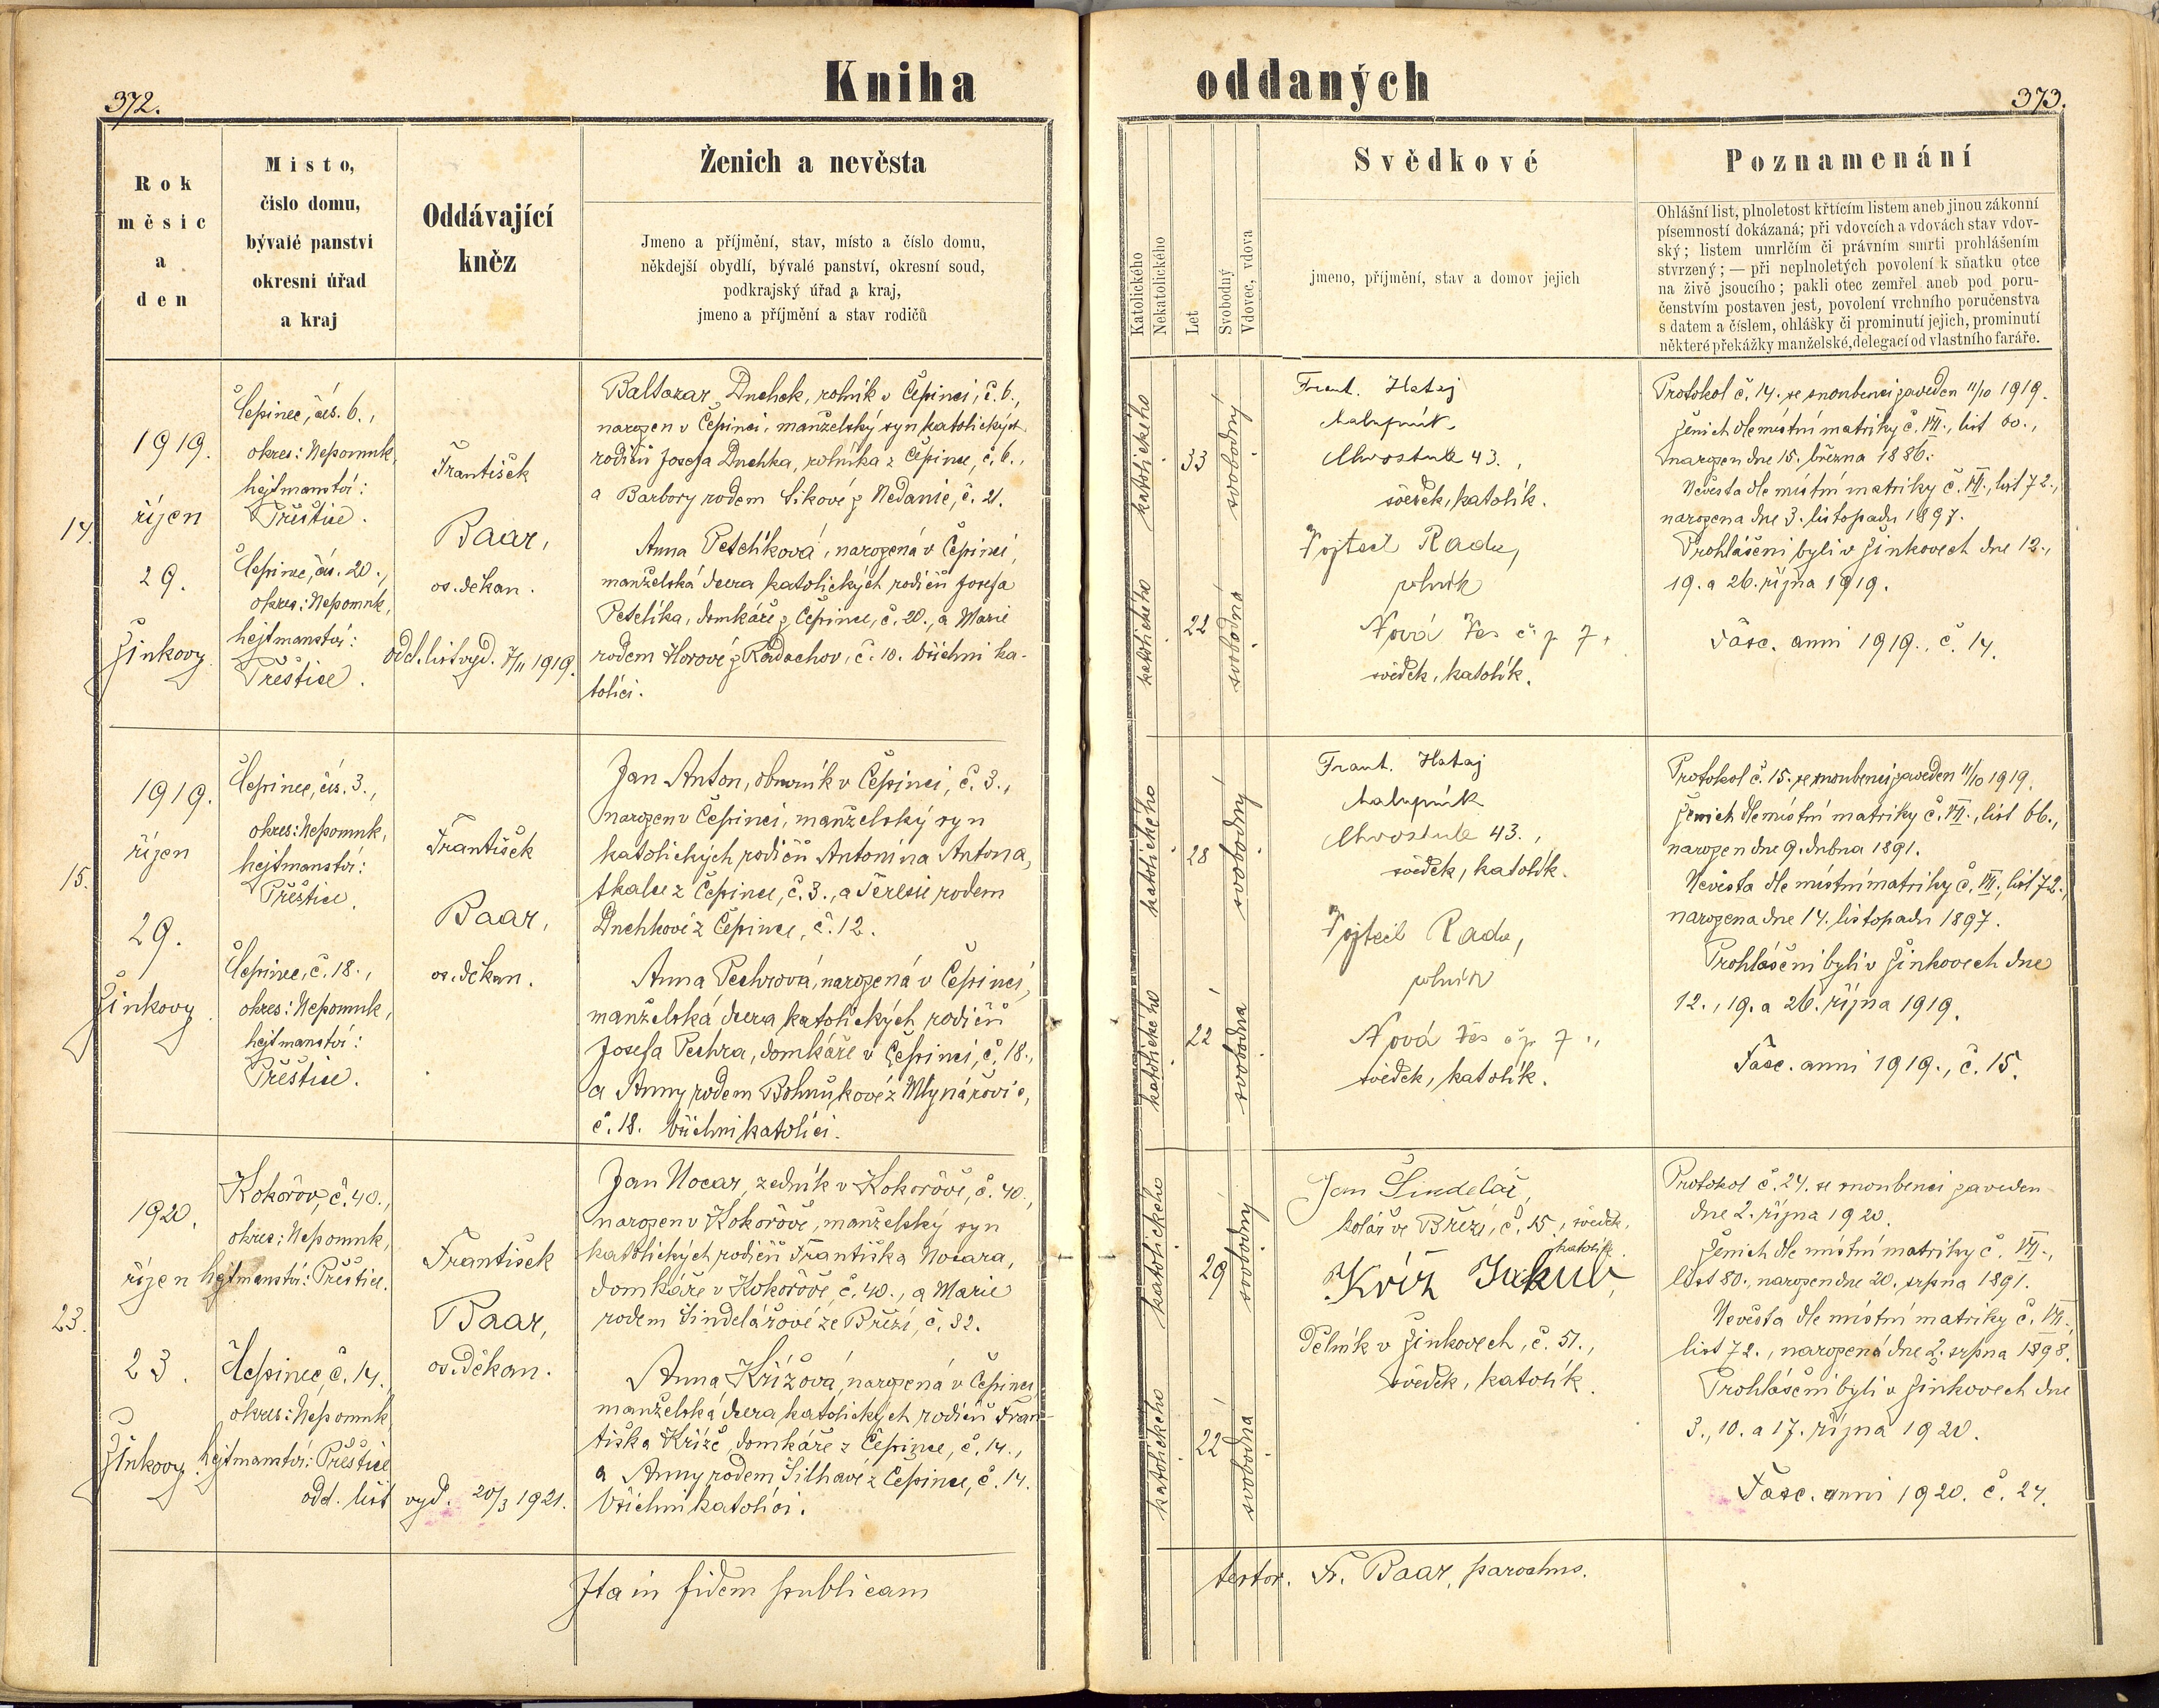 372.
Kniha
oddaných
373.
Rok
měsíc
a
den
Místo,
číslo domu,
bývalé panství
okresní úřad
a kraj
Oddávající
kněz
Ženich a nevěsta
Jmeno a příjmění, stav, místo a číslo domu,
někdejší obydlí, bývalé panství, okresní soud,
podkrajský úřad a kraj,
jmeno a příjmění a stav rodičů
Katolického
Nekatolického
Let
Svobodný
Vdovec, vdova
Svědkové
jmeno, příjmění, stav a domov jejich
Poznamenání
Ohlášní list, plnoletost křtícím listem aneb jinou zákonní
písemností dokázaná; při vdovcích a vdovách stav vdov-
ský; listem umrlčím či právním smrti prohlášením
stvrzený; — při neplnoletých povolení k sňatku otce
na živě jsoucího; pakli otec zemřel aneb pod poru-
čenstvím postaven jest, povolení vrchního poručenstva
s datem a číslem, ohlášky či prominutí jejich, prominutí
některé překážky manželské, delegací od vlastního faráře.
14.
1919.
říjen
29.
Žinkovy.
Čepinec, čís. 6.,
okres: Nepomuk,
hejtmanství:
Přeštice.
Čepinec, čís. 20.,
okres: Nepomuk,
hejtmanství:
Přeštice.
František
Baar,
os. děkan.
odd. list vyd. 7/11 1919.
Baltazar Duchek, rolník v Čepinci, č. 6.,
narozen v Čepinci, manželský syn katolických
rodičů Josefa Duchka, rolníka z Čepince, č. 6.,
a Barbory rodem Sikové z Nedanic, č. 21.
Anna Petelíková, narozená v Čepinci,
manželská dcera katolických rodičů Josefa
Petelíka, domkáře z Čepince, č. 20., a Marie
rodem Horové z Radachov, č. 10. Všichni ka-
tolíci.
katolického
33
svobodný
katolického
22
svobodná
Frant. Hataj
chalupník
Chvostule 43.,
svědek, katolík.
Vojtěch Radu,
rolník
Nová Ves č p 7.
svědek, katolík.
Protokol č. 14. se snoubenci zaveden 11/10 1919.
Ženich dle místní matriky č. VII., list 60.,
narozen dne 15. března 1886.
Nevěsta dle místní matriky č. VII., list 72.,
narozena dne 3. listopadu 1897.
Prohlášeni byli v Žinkovech dne 12.,
19. a 26. října 1919.
Fasc. anni 1919., č. 14.
15.
1919.
říjen
29.
Žinkovy.
Čepinec, čís. 3.,
okres: Nepomuk,
hejtmanství:
Přeštice.
Čepinec, č. 18.,
okres: Nepomuk,
hejtmanství:
Přeštice.
František
Baar,
os. děkan.
Jan Anton, obuvník v Čepinci, č. 3.,
narozen v Čepinci, manželský syn
katolických rodičů Antonína Antona,
tkalce z Čepince, č. 3., a Terezie rodem
Duchkové z Čepince, č. 12.
Anna Pechrová, narozená v Čepinci,
manželská dcera katolických rodičů
Josefa Pechra, domkáře v Čepinci, č. 18.,
a Anny rodem Bohnukové z Mlynářovic,
č. 18. Všichni katolíci.
katolického
28
svobodný
katolického
22
svobodná
Frant. Hataj
chalupník
Chvostule 43.,
svědek, katolík.
Vojtěch Radu,
rolník
Nová Ves č p 7.,
svědek, katolík.
Protokol č. 15. se snoubenci zaveden 11/10 1919.
Ženich dle místní matriky č. VII., list 66.,
narozen dne 9. dubna 1891.
Nevěsta dle místní matriky č. VII., list 72.,
narozena dne 14. listopadu 1897.
Prohlášeni byli v Žinkovech dne
12., 19. a 26. října 1919.
Fasc. anni 1919., č. 15.
23.
1920.
říjen
23.
Žinkovy.
Kokořov, č. 40.,
okres: Nepomuk,
hejtmanství: Přeštice.
Čepinec, č. 14.,
okres: Nepomuk
hejtmanství: Přeštice
odd. list vyd. 20/3 1921.
František
Baar,
os. děkan.
Jan Nocar, zedník v Kokořově, č. 40.,
narozen v Kokořově, manželský syn
katolických rodičů Františka Nocara,
domkáře v Kokořově, č. 40., a Marie
rodem Šindelářové ze Březí, č. 32.
Anna Křížová, narozená v Čepinci,
manželská dcera katolických rodičů Fran-
tiška Kříže, domkáře z Čepince, č. 14.,
a Anny rodem Šilhavé z Čepince, č. 14.
Všichni katolíci.
katolického
29
svobodný
katolického
22
svobodná
Jan Šindelář,
kolář ve Březí, č. 15, svědek,
katolík.
Kříž Jakub,
Dělník v Žinkovech, č. 51.,
svědek, katolík.
Protokol č. 24. se snoubenci zaveden
dne 2. října 1920.
Ženich dle místní matriky č. VII.,
list 80., narozen dne 20. srpna 1891.
Nevěsta dle místní matriky č. VII.,
list 72., narozená dne 2. srpna 1898.
Prohlášeni byli v Žinkovech dne
3., 10. a 17. října 1920.
Fasc. anni 1920. č. 24.
Ita in fidem publicam
testor. Fr. Baar, parochus.